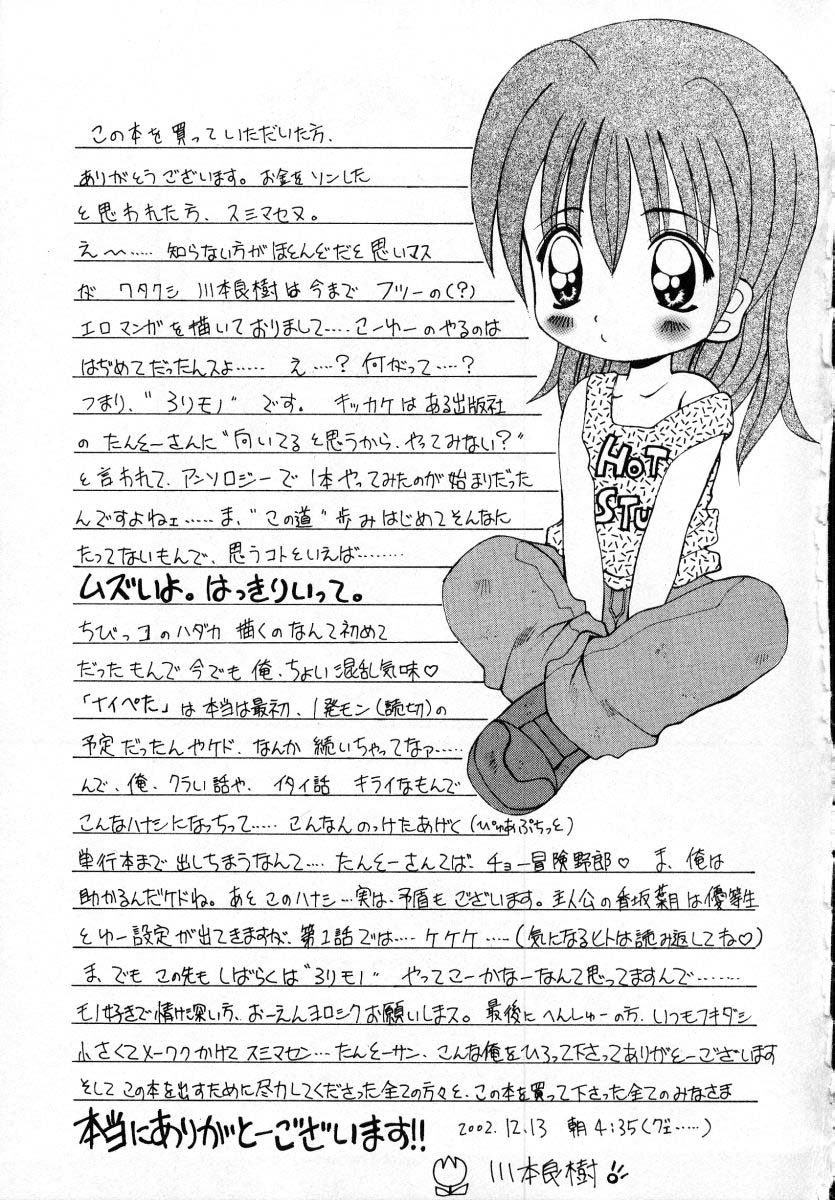 この本を買っていただいた方、
ありがとうございます。お金をソンした
と思われた方、スミマセヌ。
え〜‥‥‥ 知らない方がほとんどだと思いマス
が ワタクシ 川本良樹は今まで フツーの(?)
エロマンガを描いておりまして‥‥‥こーゆーのやるのは
はぢめてだったんスよ‥‥‥ え‥‥?何がって‥‥?
つまり、"ろりモノ" です。 キッカケは ある出版社
の たんとーさんに"向いてると思うから、やってみない?"
と言われて、アンソロジーで 1本やってみたのが始まりだった
んですよねェ‥‥‥ま、"この道"歩みはじめてそんなに
たってないもんで、思うコトといえば‥‥‥‥
ムズいよ。はっきりいって。
ちびっコのハダカ 描くのなんて初めて
だったもんで今でも俺、ちょい混乱気味♡
「ナイペた」は本当は最初、1発モン(読切)の
予定だったんやケド、なんか 続いちゃってなァ‥‥‥
んで、俺、クラい話や、イタイ話 キライなもんで
こんなハナシになっちって‥‥‥こんなんのっけたあげく(ぴゅあぷちっと)
単行本まで出しちまうなんて‥‥たんとーさんてば、チョー冒険野郎♡ ま、俺は
助かるんだケドね。あと このハナシ‥‥実は、矛盾もございます。主人公の香坂葉月は優等生
とゆー設定が出てきますが、第1話では‥‥ケケケ‥‥‥(気になるヒトは読み返してね♡)
ま、でも この先もしばらくは"ろりモノ" やってこーかなーなんて思ってますんで‥‥‥‥
モノ好きで情け深い方、おーえんヨロシクお願いしまス。最後に へんしゅーの方、いつもフキダシ
小さくてメーワクかけて スミマセン‥‥たんとーサン、こんな俺をひろって下さってありがとーございます
そして この本を出すために尽力してくださった全ての方々と、この本を買って下さった全てのみなさま
本当にありがとーございます!!
2002.12.13 朝4:35(グエ‥‥‥)
川本良樹
HOT
STU